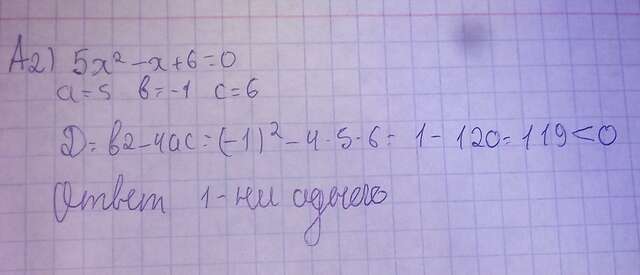 А2) 5x² - x + 6 = 0
a = 5 в = -1 c = 6
D = в2 - 4ac = (-1)² - 4 · 5 · 6 = 1 - 120 = 119 < 0
Ответ 1 - ни одного